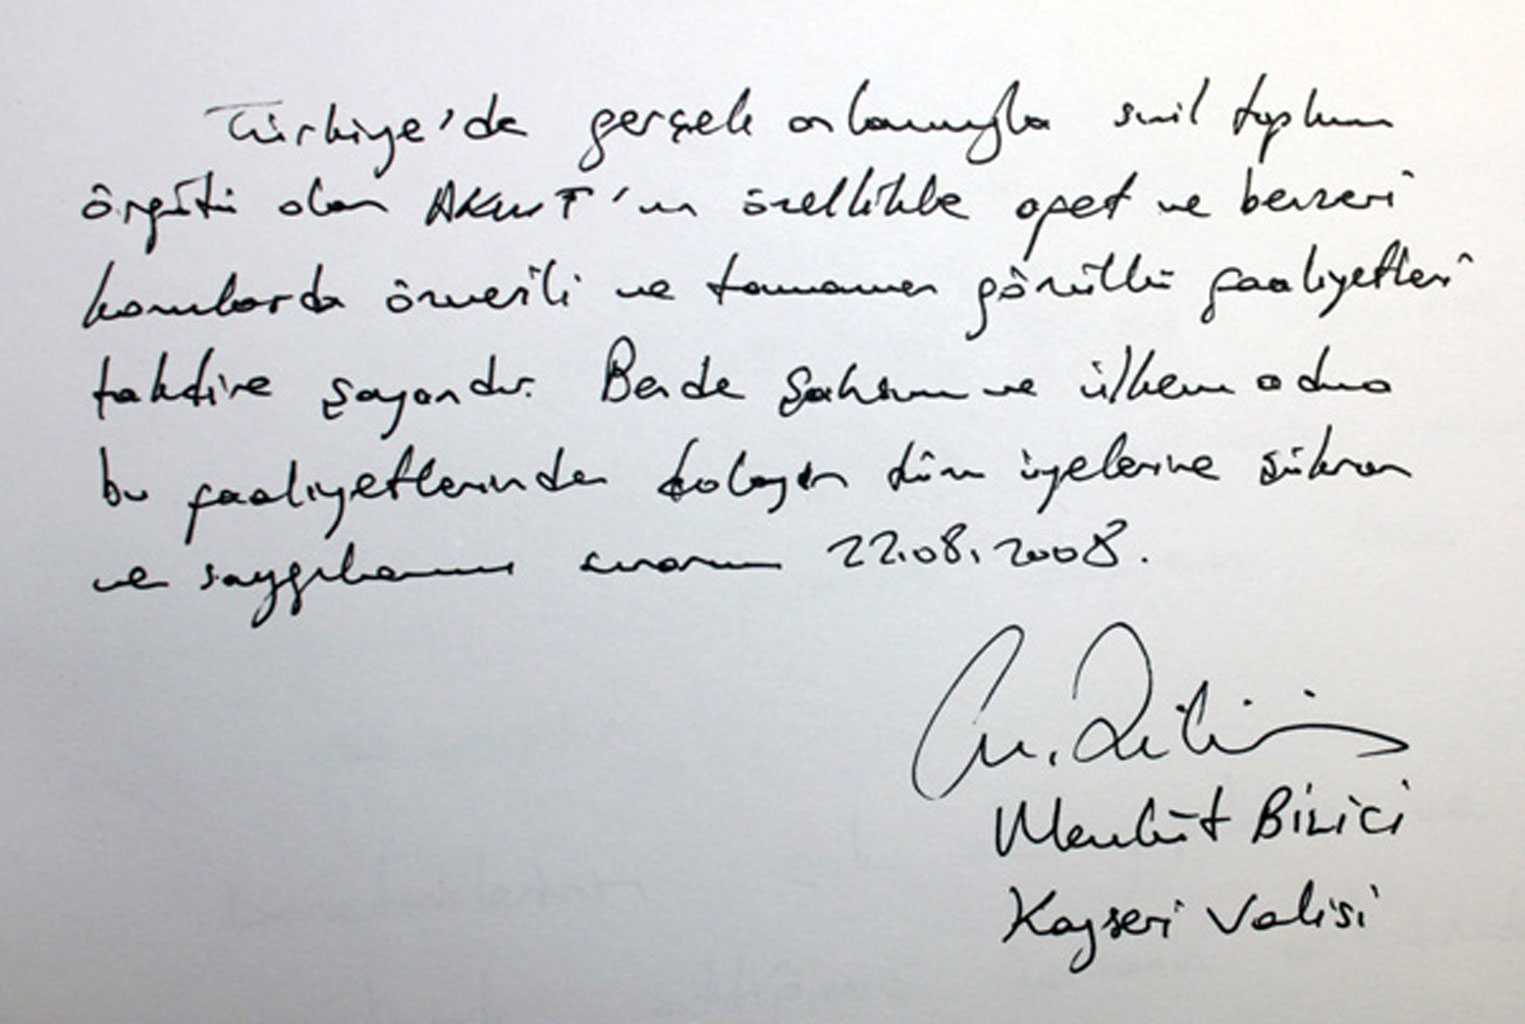 Türkiye'de gerçek anlamıyla sivil toplum
örgütü olan AKUT'un özellikle afet ve benzeri
konularda önverili ve tamamen gönüllü faaliyetleri
takdire şayandır. Bende şahsım ve ülkem adına
bu faaliyetlerinden dolayın tüm üyelerine şükran
ve saygılarımı sunarım 22.08.2008.
M. Bilici
Mevlüt BiLiCi
Kayseri Valisi